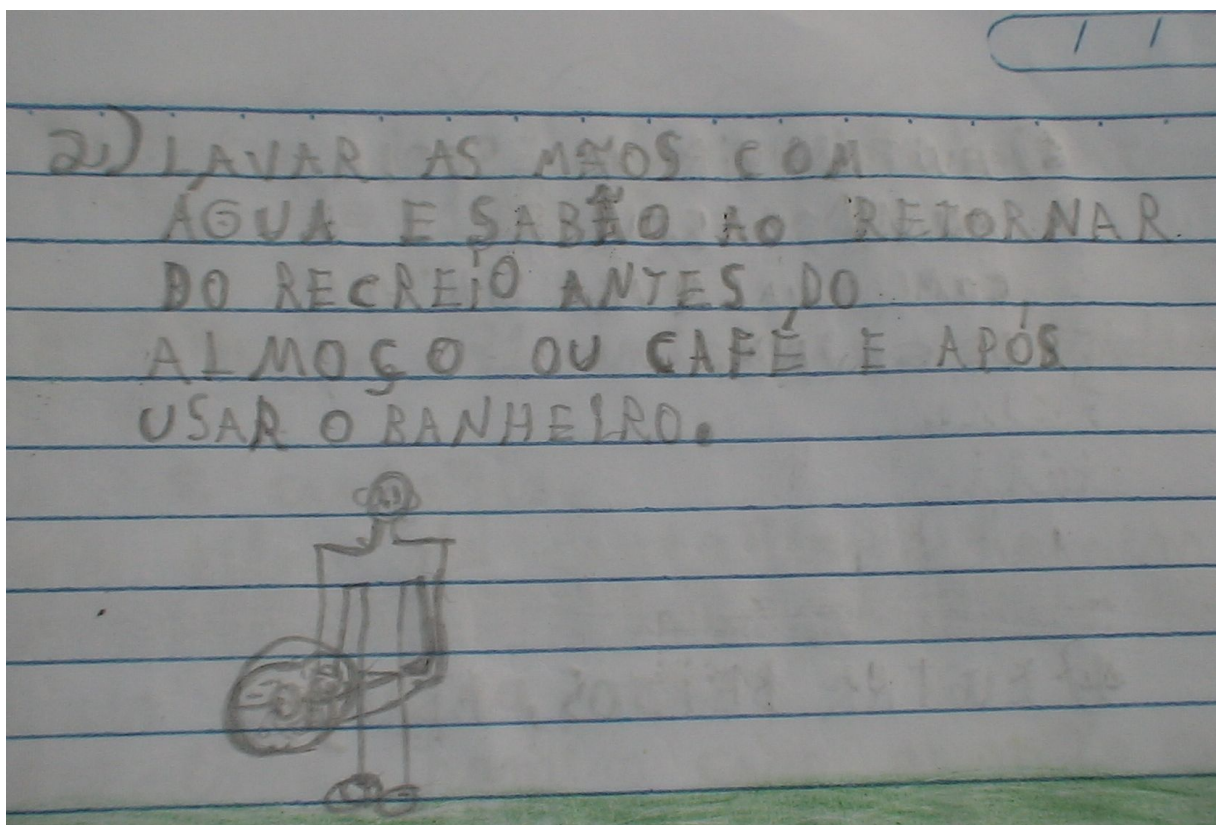 2) LAVAR AS MÃOS COM
ÁGUA E SABÃO AO RETORNAR
DO RECREIO ANTES DO
ALMOÇO OU CAFÉ E APÓS
USAR O BANHEIRO.